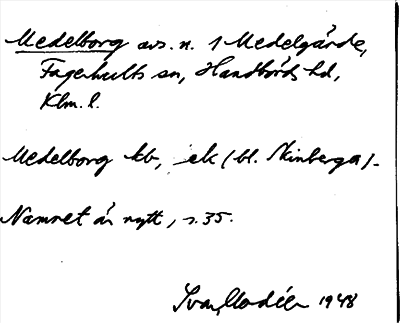 Medelborg avs. n. 1 Medelgärde,
Fagerhults sn, Handbörds hd,
Klm. l.
Medelborg kb, ek (bl. Skinberga).
Namnet är nytt, s. 35.
Ivar Modéer 1948